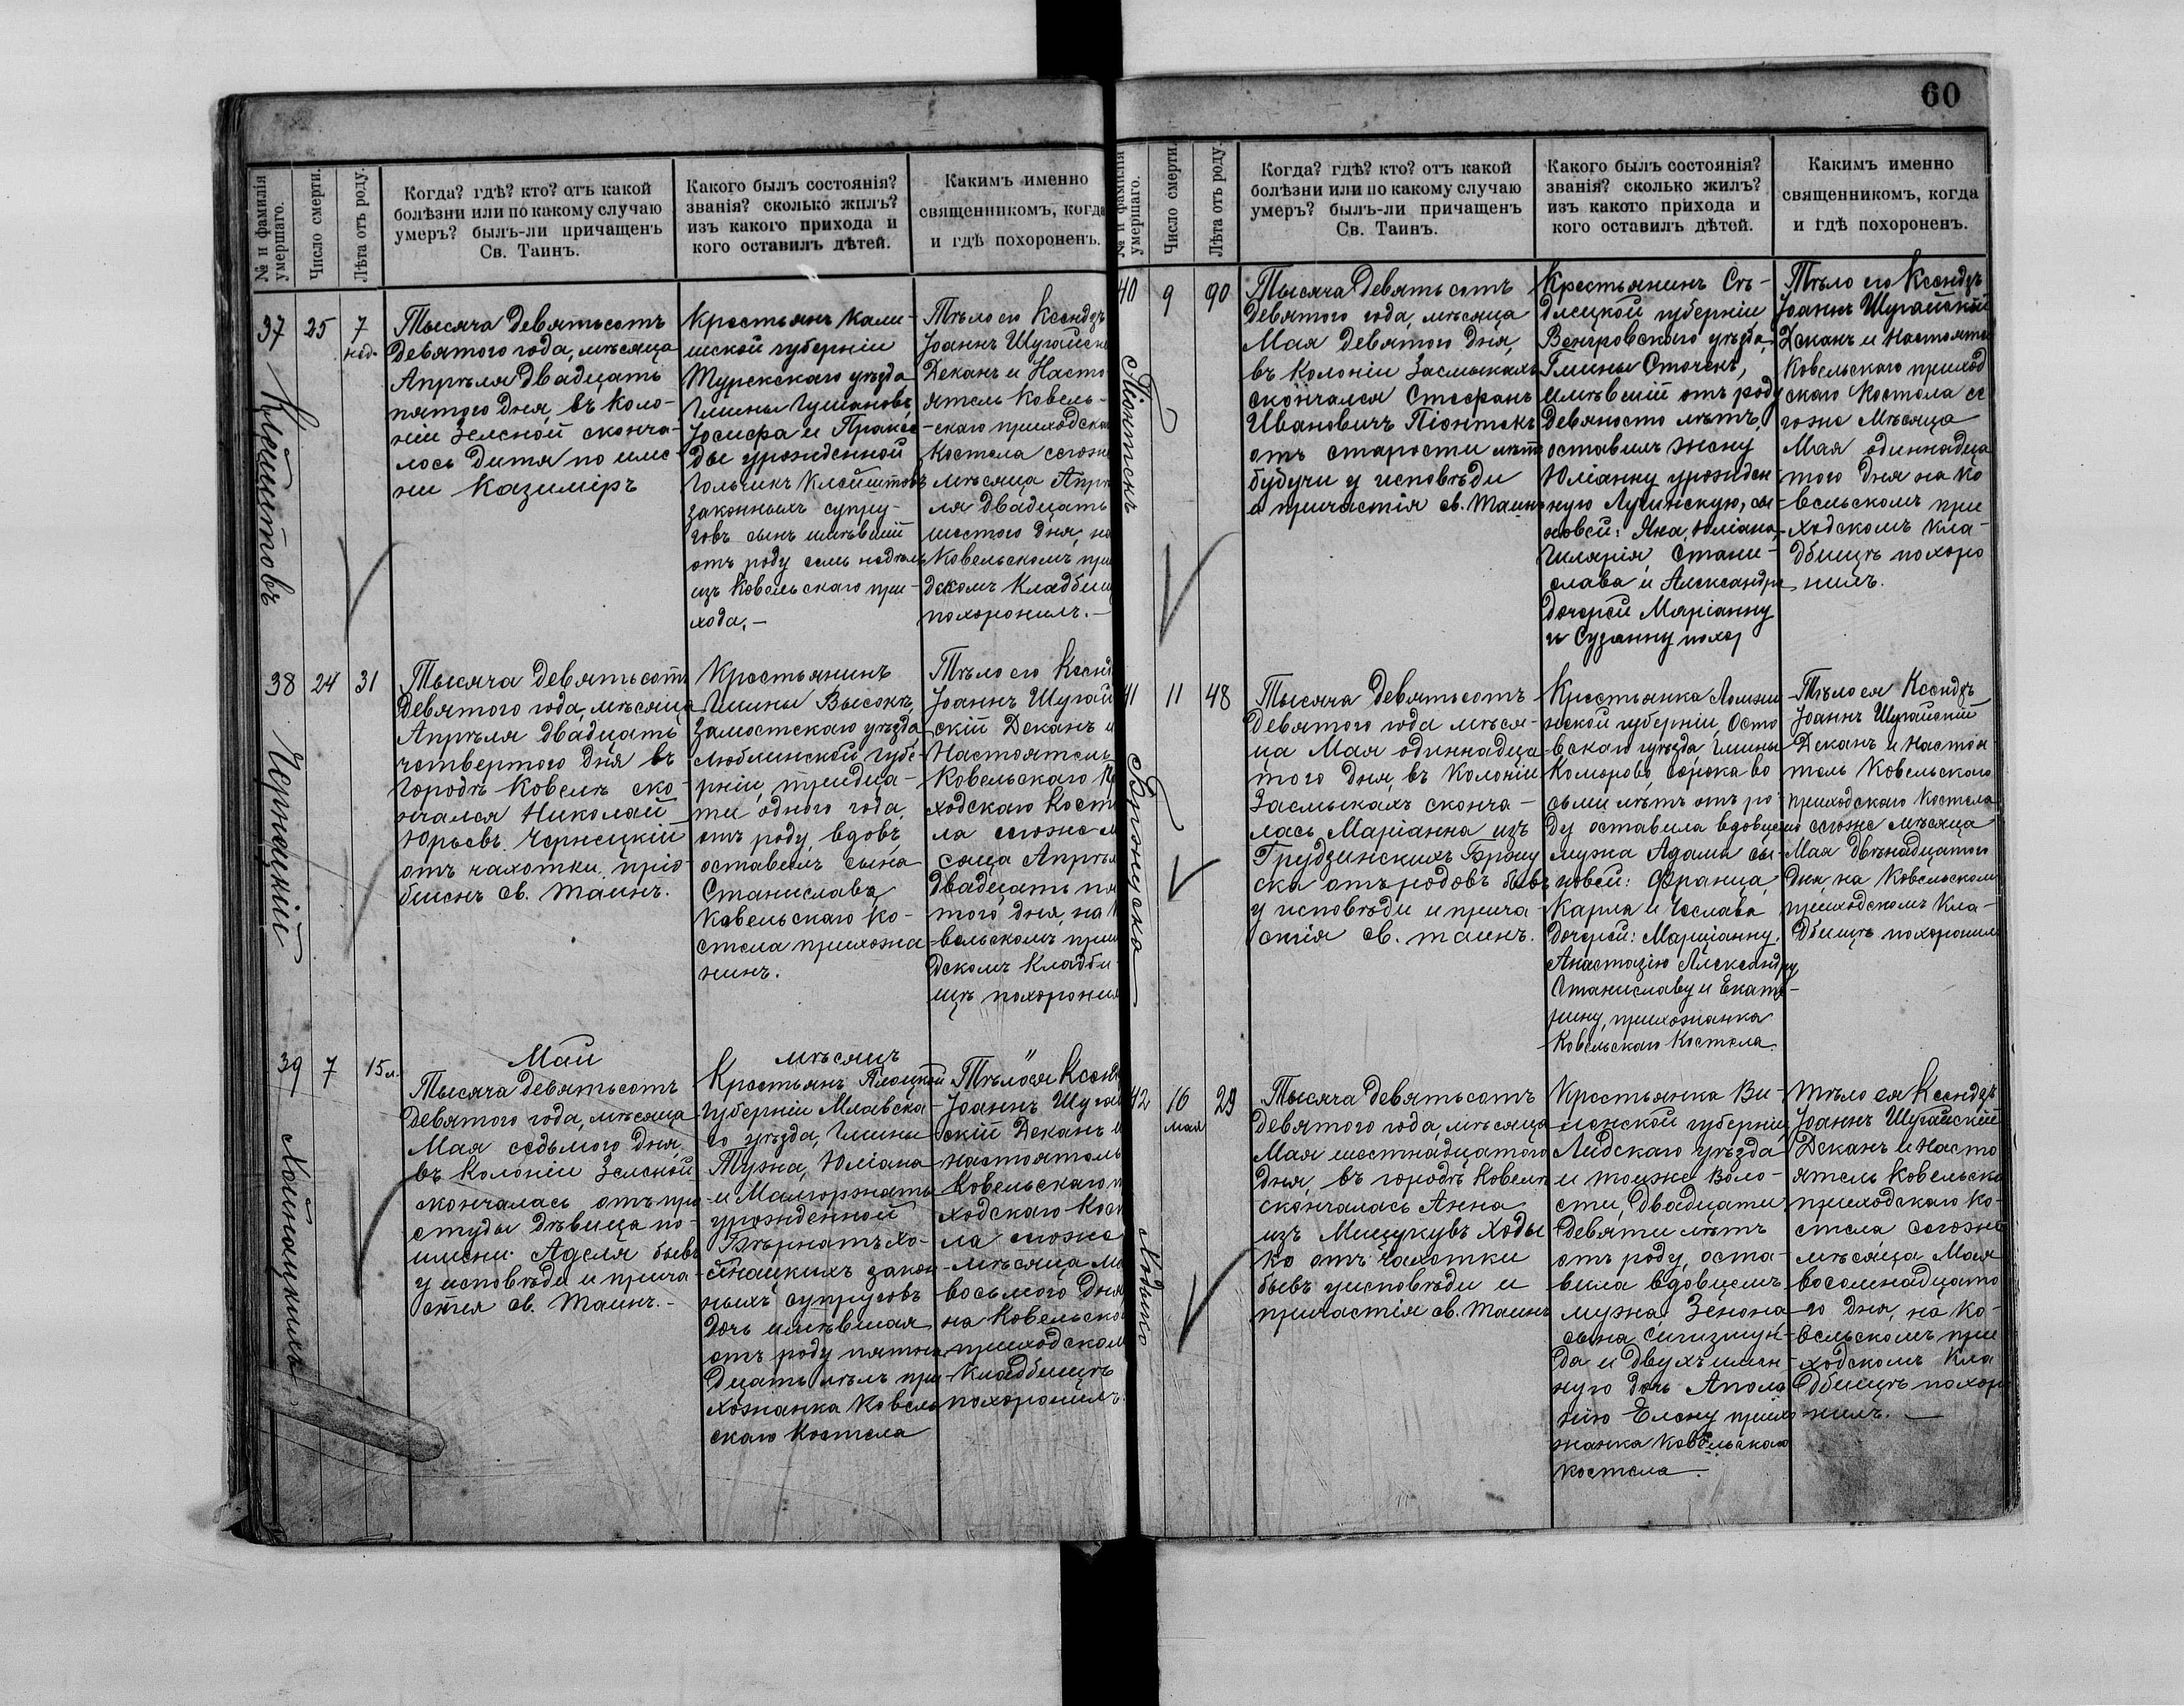 № и фамилія умершаго.
Число смерти.
Лѣта отъ роду.
Когда? гдѣ? кто? отъ какой
болѣзни или по какому случаю
умеръ? былъ-ли причащенъ
Св. Таинъ.
Какого былъ состоянія?
званія? сколько жилъ?
изъ какого прихода и
кого оставилъ дѣтей.
Какимъ именно
священникомъ, когда
и гдѣ похороненъ.
37
Клейштовъ
25
7
нед.
Тысяча девятьсотъ
девятого года, мѣсяца
Апрѣля двадцать
пятого дня, въ коло-
ніи Зеленой сконча-
лось дитя по име
ни Казиміръ
Крестьянъ Кали-
шской губерніи
Турекскаго уѣзда
Гмины
Іосифа и Праксе
ды урожденной
Клейштовъ
законныхъ супру-
говъ сынъ имѣвшій
отъ роду семь недѣль
изъ Ковельскаго при-
хода.—
Тѣло его Ксендзъ
Іоаннъ Шугайск
Деканъ и Насто
ятель Ковель-
скаго приходска
Костела сегоже
мѣсяца Апрѣ
ля двадцать
шестого дня, на
Ковельскомъ при
дскомъ Кладбищ
похоронилъ.—
38
Чернецкій
24
31
Тысяча девятьсотъ
девятого года, мѣсяца
Апрѣля двадцать
четвертого дня въ
городѣ Ковелѣ ско-
нчался Николай
Юрьевъ Чернецкій
отъ чахотки пріо
бщенъ св. таинъ.
Крестьянинъ
Гмины Высоке,
Замостскаго уѣзда
Люблинской губе-
рніи, тридца-
ти одного года,
отъ роду, вдовъ,
оставилъ сына
Станислава,
Ковельскаго ко-
стела прихожа
нинъ.
Тѣло его Ксенд
Іоаннъ Шугай
скій Деканъ и
Настоятель
Ковельскаго
ходскаго Кост
ла сегоже м
сяца Апрѣл
двадцать пя
того дня, на
вельскомъ при
дскомъ Кладби
щѣ похоронил
Май мѣсяцъ
39
7
15 л.
Тысяча девятьсотъ
девятого года, мѣсяца
Мая седьмого дня,
въ Колоніи Зеленой
скончалась отъ про
студы дѣвица по-
имени Аделя бывъ
у исповѣди и прича
стія св. Таинъ.-
Крестьянъ Плоцкой
губерніи Млавска-
го уѣзда, Гмины
Тужа, Юліана
и Малгоржаты
урожденной
закон
ныхъ супруговъ
дочь имѣвшая
отъ роду пятна
дцать лѣтъ при
хожанка Ковель
скаго Костела
Тѣло ея Ксен
Іоаннъ Шугай
скій Деканъ и
настоятель
Ковельскаго п
ходскаго Кост
ла сегоже
мѣсяца Ма
восьмого дня
на Ковельско
приходском
Кладбищѣ
похоронилъ.
60
№ и фамилія умершаго.
Число смерти.
Лѣта отъ роду.
Когда? гдѣ? кто? отъ какой
болѣзни или по какому случаю
умеръ? былъ-ли причащенъ
Св. Таинъ.
Какого былъ состоянія?
званія? сколько жилъ?
изъ какого прихода и
кого оставилъ дѣтей.
Какимъ именно
священникомъ, когда
и гдѣ похороненъ.
40
Піонтекъ
9
90
Тысяча девятьсотъ
девятого года, мѣсяца
Мая девятого дня,
въ Колоніи Засмыкахъ
скончался Стефанъ
Ивановичъ Піонтекъ
отъ старости лѣтъ
будучи у исповѣди
и причастія св. Таинъ
Крестьянинъ Сѣ-
длецкой губерніи
Венгровскаго уѣзда,
Гмины Сточекъ,
имѣвшій отъ роду
девяносто лѣтъ,
оставилъ жену
Юліанну урожден
ную сы
новей: Яна, Юліана,
Гилярія, Стани-
слава и Александра
дочерей Маріанну
и Сузанну похор
Тѣло его Ксендзъ
Іоаннъ Шугайскій
Деканъ и Настояте
Ковельскаго приход
скаго Костела се
гоже Мѣсяца
Мая одиннадца
того дня на Ко
вельскомъ при
ходскомъ кла-
дбищѣ похоро
нилъ.
41
11
48
Тысяча девятьсотъ
девятого года мѣся-
ца Мая одиннадца
того дня, въ Колоніи
Засмыкахъ сконча-
лась Маріанна изъ
Грудзинскихъ
бывъ
у исповѣди и прича-
стія св. таинъ.
Крестьянка Ломжи
нской губерніи, Остро
вскаго уѣзда, Гмины
Коморово, сорока во
сьми лѣтъ отъ ро-
ду оставила вдовцемъ
мужа Адама сы-
новей: Франца,
Карла и Чеслава
дочерей: Марціанну,
Анастазію Александру,
Станиславу и Екате-
рину, прихожанка
Ковельскаго Костела.
Тѣло ея Ксендзъ
Іоаннъ Шугайскій
Деканъ и Настоя-
тель Ковельскаго
приходскаго Костела
сегоже мѣсяца
Мая двѣнадцатого
дня, на Ковельском
приходскомъ Кла-
дбищѣ похоронилъ
42
Ходыко
16
мая
29
Тысяча девятьсотъ
девятого года, мѣсяца
Мая шестнадцатого
дня, въ городѣ Ковелѣ
скончалась Анна
изъ Мицукувъ Ходы
ко отъ чахотки
бывъ у исповѣди и
причастія св. Таинъ
Крестьянка Ви-
ленской губерніи,
Лидскаго уѣзда
и тоиже Воло-
сти, двадцати
девяти лѣтъ
отъ роду, оста-
вила вдовцемъ
мужа Зенона
сына Сигизмун-
да и двухъимен
ную дочь Аполо
нію Елену прихо
жанка Ковельскаго
костела.
Тѣло ея Ксендзъ
Іоаннъ Шугайскій
Деканъ и Насто
ятель Ковельска
приходскаго Ко-
стела сегоже
мѣсяца Мая
восемнадцато
го дня, на Ко-
вельскомъ при
ходскомъ Кла
дбищѣ похоро
нилъ.—